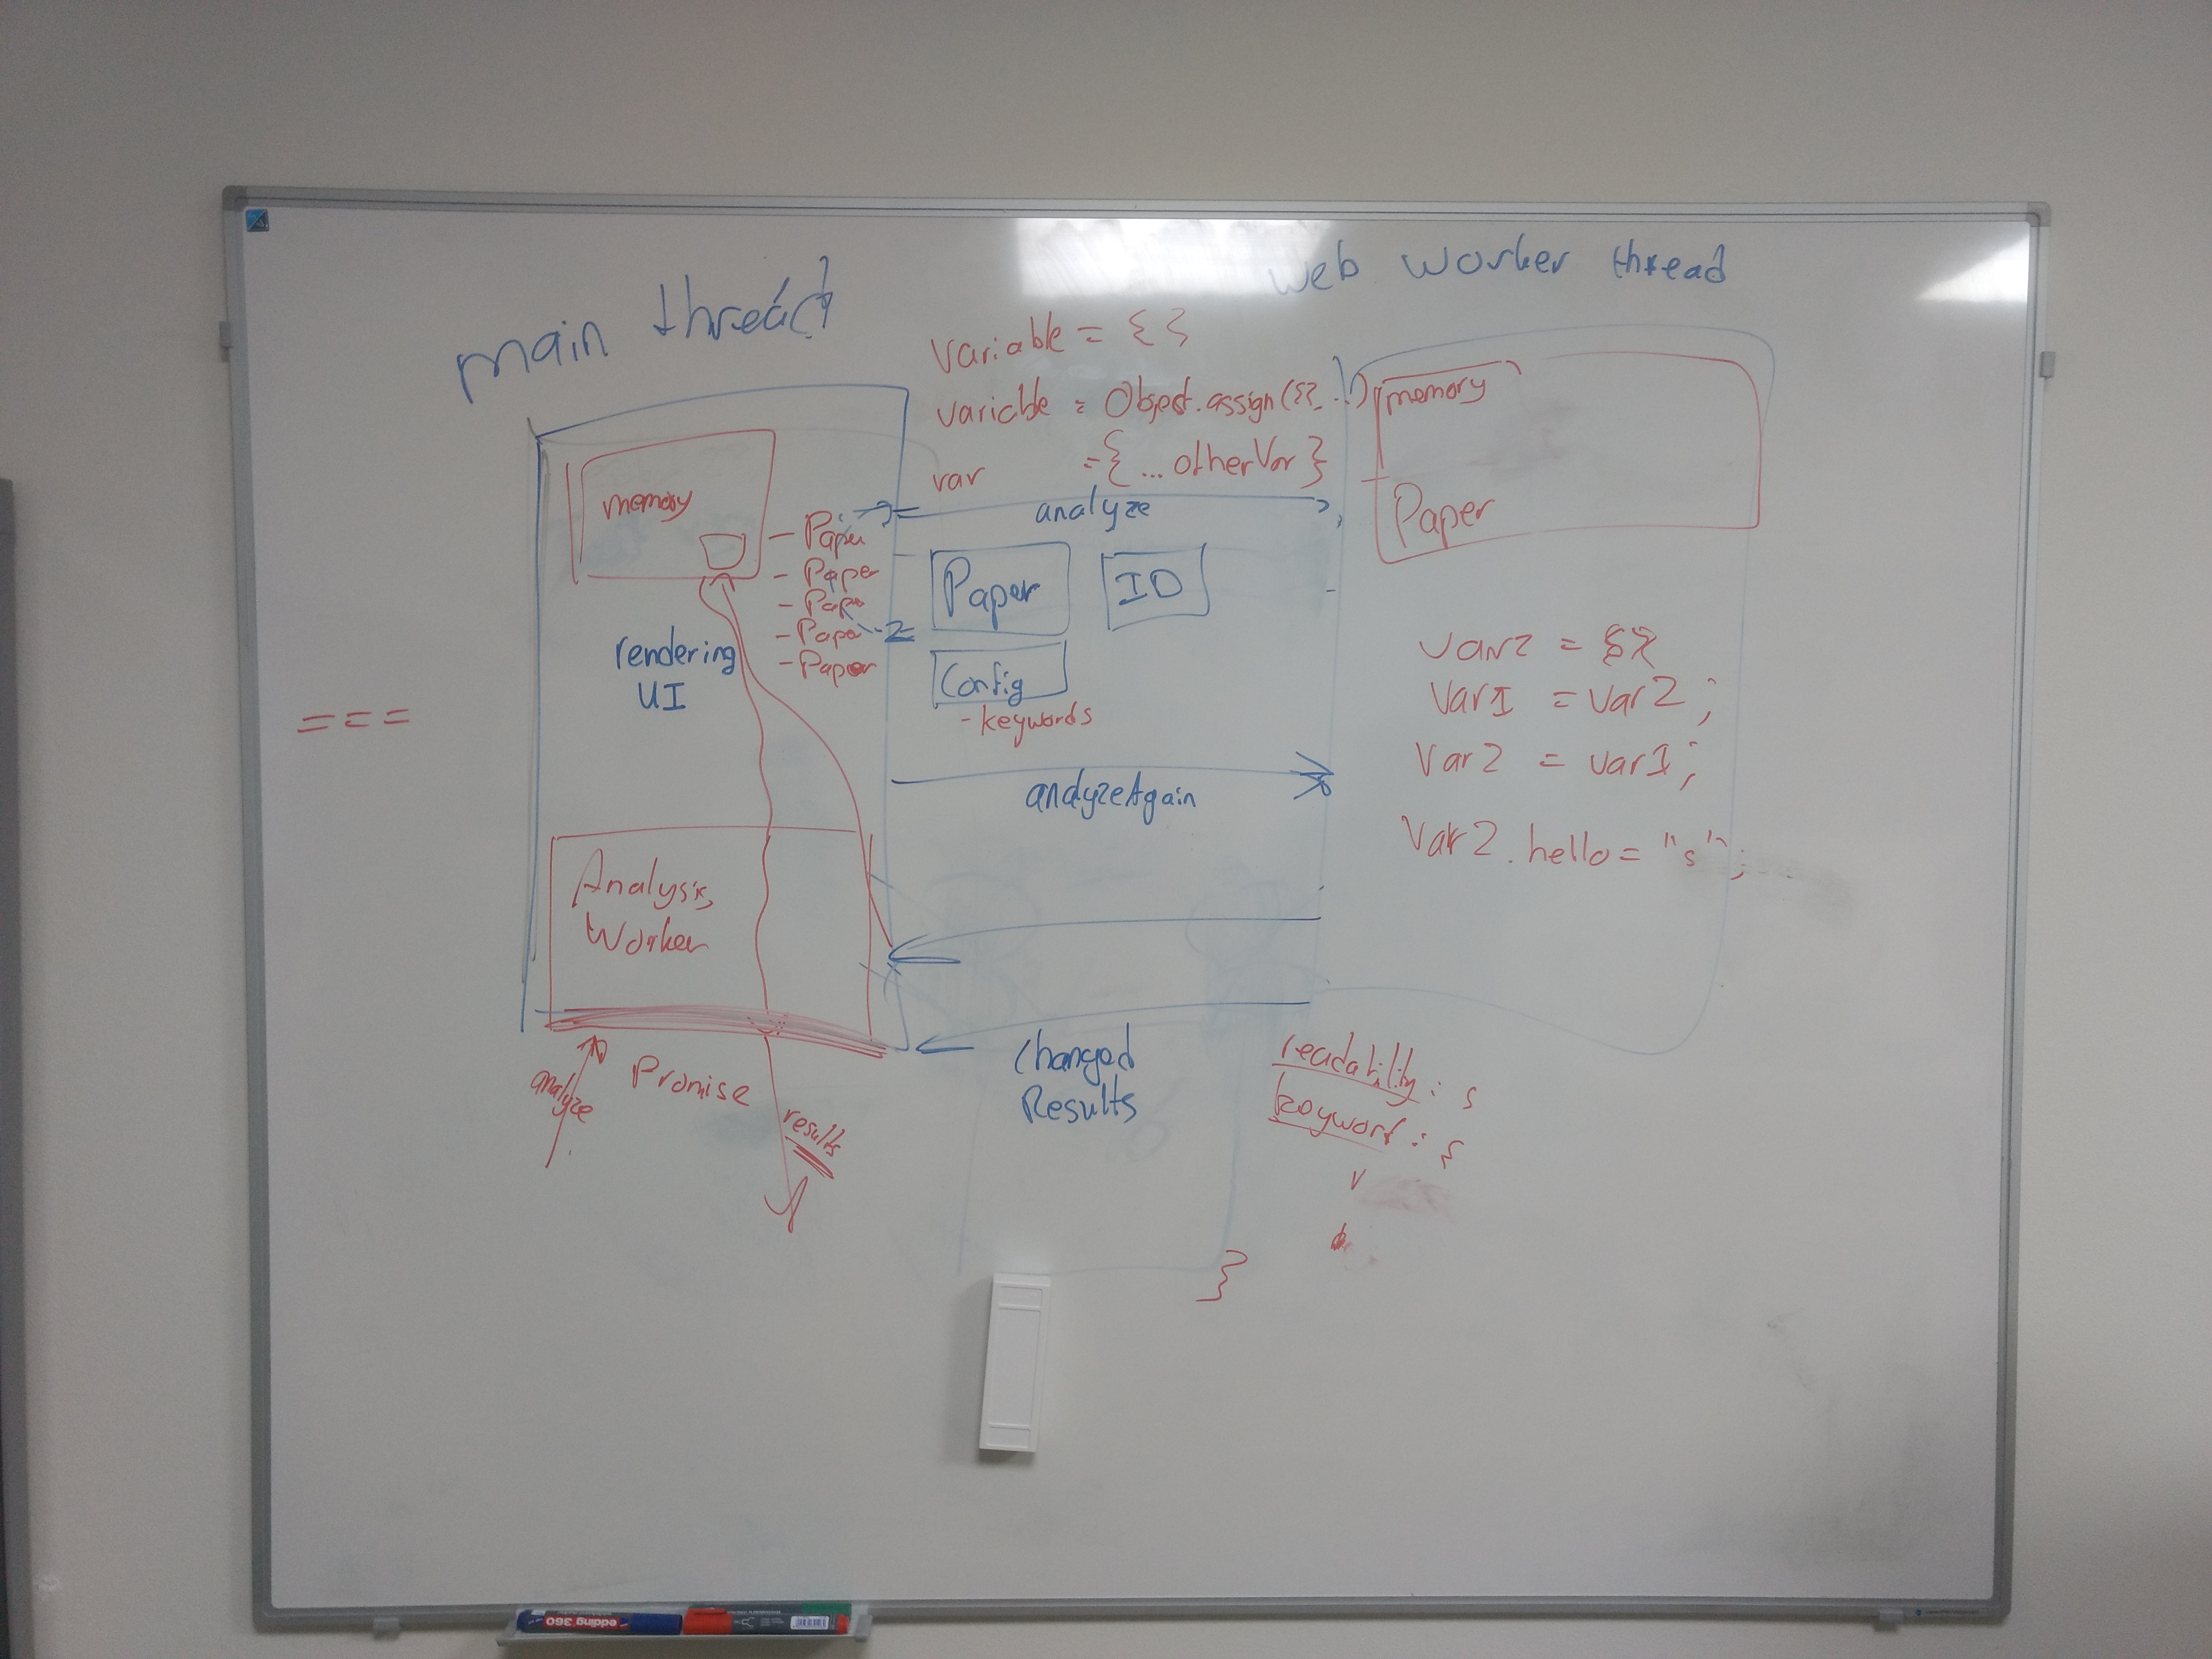 main thread
web worker thread
variable = { }
variable = Object.assign({}, ..)
var = { ... otherVar }
memory
- Paper
- Paper
- Pape
- Pape
- Paper
rendering
UI
===
analyze
Paper
ID
Config
- keywords
analyzeAgain
memory
Paper
var2 = {}
Var1 = Var2;
Var2 = Var1;
Var2.hello = "s";
Analysis
Worker
analyze
Promise
results
Changed
Results
readability: s
keyword: s
}
edding 360